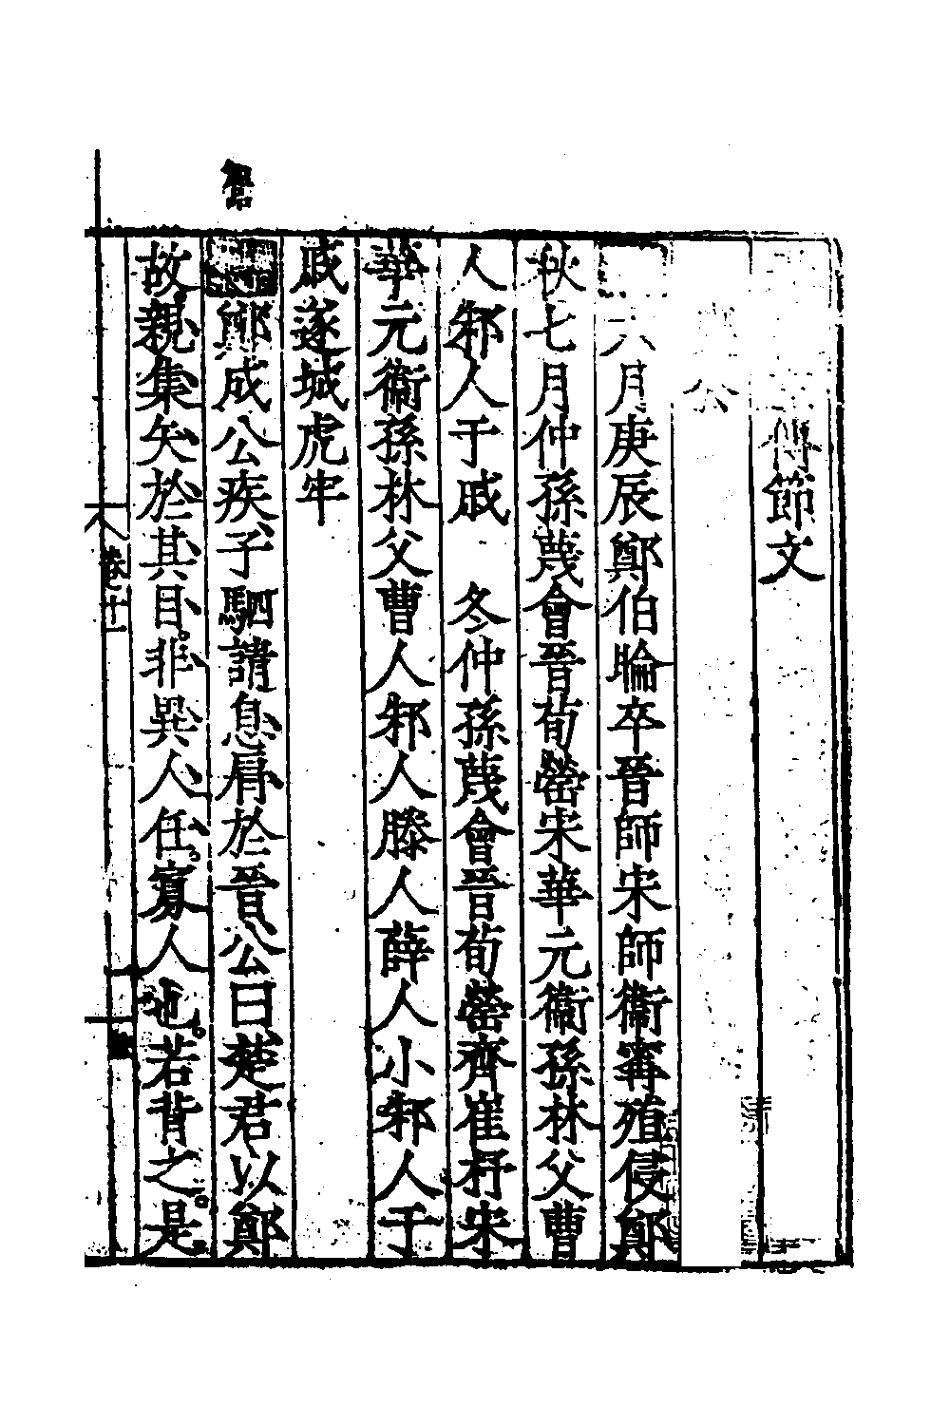 傳節文
公
六月庚辰鄭伯睔卒晉師宋師衞甯殖侵鄭
秋七月仲孫蔑會晉荀罃宋華元衞孫林父曹
人邾人于戚　冬仲孫蔑會晉荀罃齊崔杼宋
華元衞孫林父曹人邾人滕人薛人小邾人于
戚遂城虎牢
鄭成公疾、子駟請息肩於晉、公曰、楚君以鄭
故。親集矢於其目。非異人任。寡人也。若背之。是
卷十